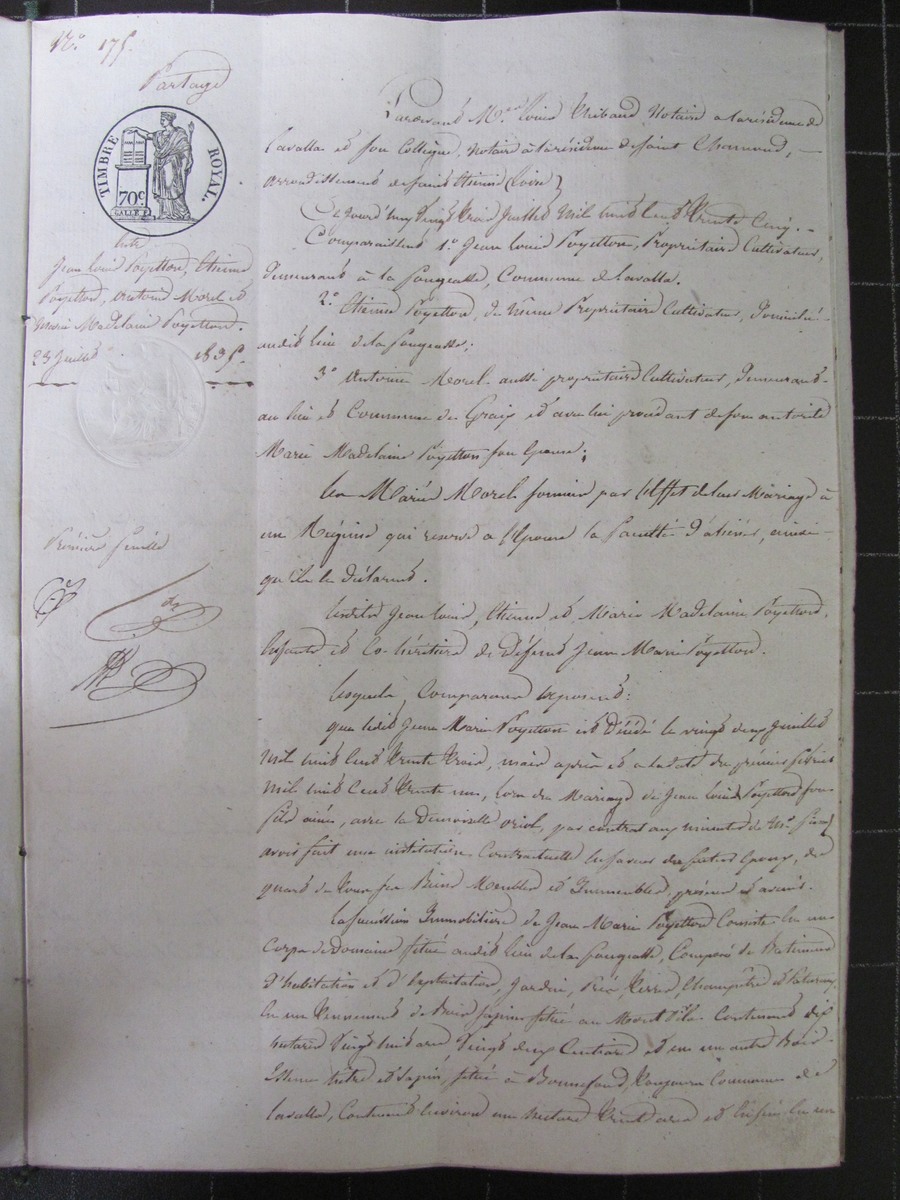 N.° 175.
Partage
TIMBRE ROYAL.
70c.
entre
Jean Louis Poyetton, Etienne
Poyetton, Antoine Morel et
Marie Madelaine Poyetton.
23 Juillet 1835.
Première feuille
Pardevant M.e Louis Thibaud Notaire a la résidence de
Lavalla et son Collègue, Notaire à la résidence de Saint Chamond,
arrondissement de Saint Etienne (Loire)
Ce jourd'huy Vingt trois Juillet Mil huit Cent Trente Cinq.
Comparaissent 1.° Jean Louis Poyetton, Propriétaire Cultivateur,
demeurant à la Fougeasse, Commune de Lavalla.
2.° Etienne Poyetton, de même Propriétaire Cultivateur, domicilié
audit lieu de la Fougeasse;
3.° Antoine Morel aussi propriétaire Cultivateur, demeurant
au lieu et Commune de Graix et avec lui procédant de son autorité
Marie Madelaine Poyetton son Epouse;
Les Mariés Morel soumis par l'effet de leur Mariage à
un Régime qui reserve à l'Epouse la faculté d'aliéner, ainsi
qu'ils le déclarent.
Lesdits Jean Louis, Etienne et Marie Madelaine Poyetton,
Enfants et Co-héritiers de défunt Jean Marie Poyetton.
Lesquels Comparants exposent:
que ledit Jean Marie Poyetton est décédé le vingt deux Juillet
Mil huit Cent Trente Trois, mais après et a la date du premier février
Mil huit Cent Trente un, lors du Mariage de Jean Louis Poyetton son
fils ainé, avec la Demoiselle Oriol, par contrat aux minutes de M.e
avoir fait une institution Contractuelle en faveur des futurs Epoux, du
quart de tous ses Biens Meubles et Immeubles, présents et avenirs.
La Succession Immobilière de Jean Marie Poyetton Consiste En un
Corps de Domaine situé audit lieu de la Fougeasse, Composé de Batiments
d'habitation et d'exploitation, Jardin, Prés, Terres, Champêtre et paturage,
En un Tennement de Bois Sapin situé au Mont Pila Contenant dix
hectares Vingt huit ares Vingt deux Centiares et en un autre Bois
Essence hêtre et Sapin, situé à Bonnefond, Commune de
Lavalla, Contenant Environ un hectare Trente ares et Enfin En un